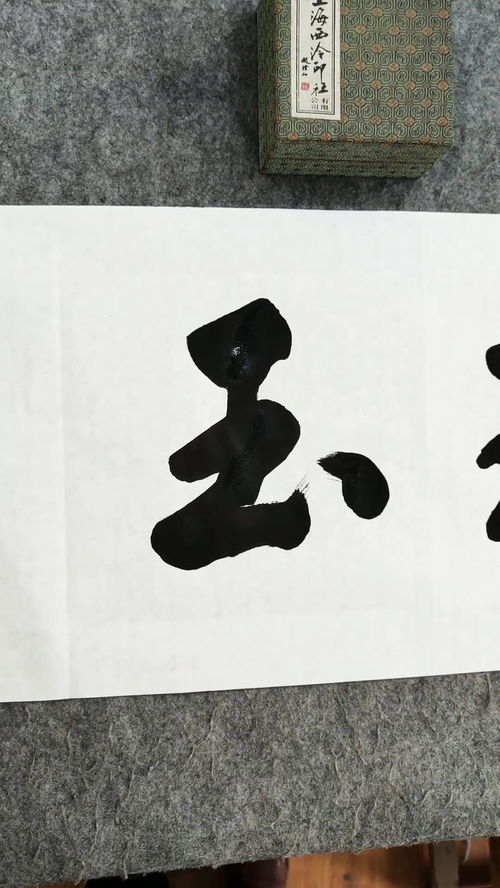 上海西泠印社
有限
公司
玉